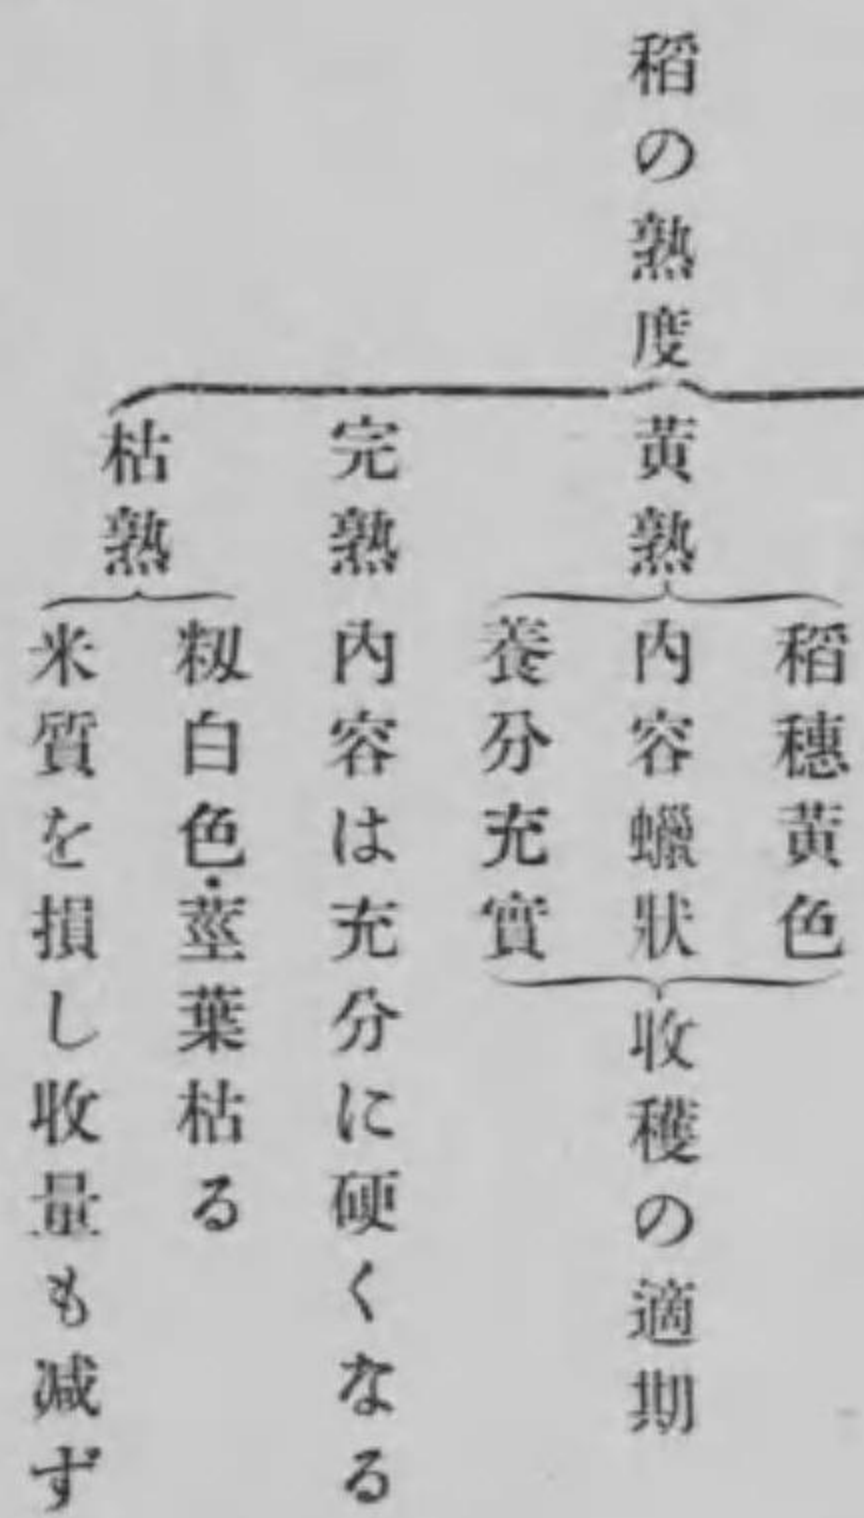 稻の熟度
黄熟
稻穗黄色
內容蠟狀
養分充實
收穫の適期
完熟
內容は充分に硬くなる
枯熟
籾白色・莖葉枯る
米質を損し收量も減ず